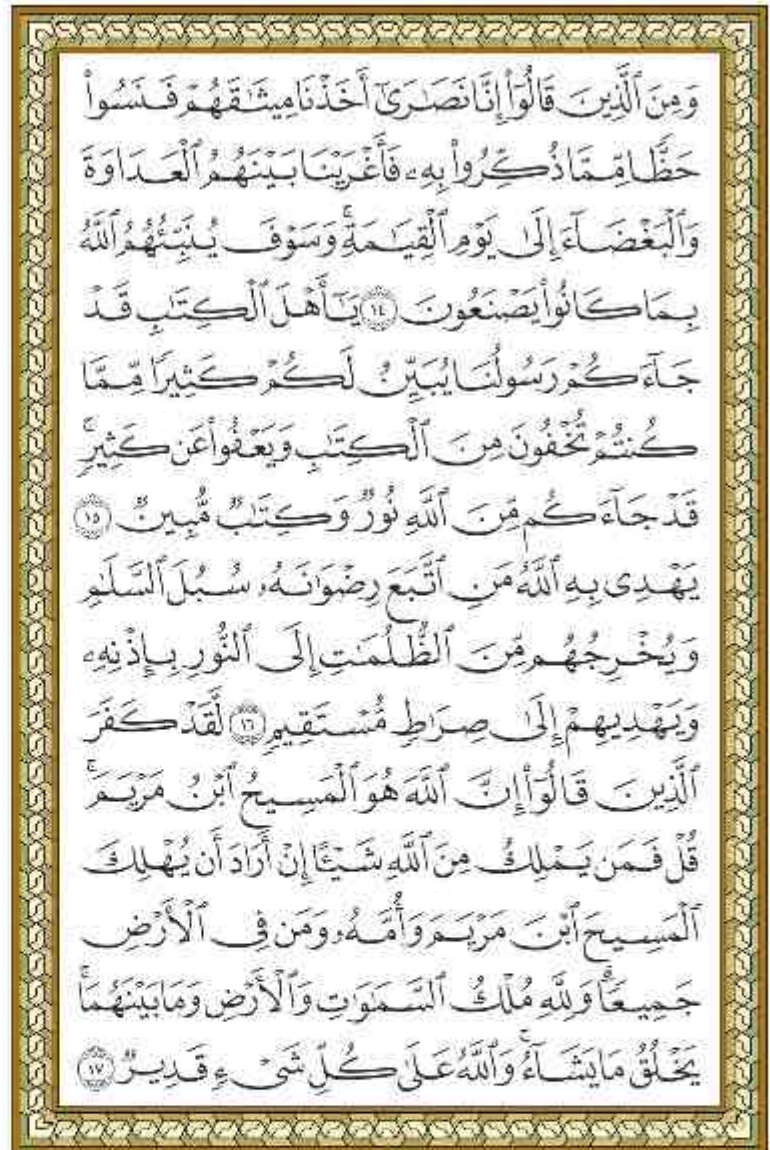 وَمِنَ ٱلَّذِينَ قَالُوٓا۟ إِنَّا نَصَـٰرَىٰٓ أَخَذْنَا مِيثَـٰقَهُمْ فَنَسُوا۟
حَظًّا مِّمَّا ذُكِّرُوا۟ بِهِۦ فَأَغْرَيْنَا بَيْنَهُمُ ٱلْعَدَاوَةَ
وَٱلْبَغْضَآءَ إِلَىٰ يَوْمِ ٱلْقِيَـٰمَةِ ۚ وَسَوْفَ يُنَبِّئُهُمُ ٱللَّهُ
بِمَا كَانُوا۟ يَصْنَعُونَ ١٤ يَـٰٓأَهْلَ ٱلْكِتَـٰبِ قَدْ
جَآءَكُمْ رَسُولُنَا يُبَيِّنُ لَكُمْ كَثِيرًا مِّمَّا
كُنتُمْ تُخْفُونَ مِنَ ٱلْكِتَـٰبِ وَيَعْفُوا۟ عَن كَثِيرٍ ۚ
قَدْ جَآءَكُم مِّنَ ٱللَّهِ نُورٌ وَكِتَـٰبٌ مُّبِينٌ ١٥
يَهْدِى بِهِ ٱللَّهُ مَنِ ٱتَّبَعَ رِضْوَٰنَهُۥ سُبُلَ ٱلسَّلَـٰمِ
وَيُخْرِجُهُم مِّنَ ٱلظُّلُمَـٰتِ إِلَى ٱلنُّورِ بِإِذْنِهِۦ
وَيَهْدِيهِمْ إِلَىٰ صِرَٰطٍ مُّسْتَقِيمٍ ١٦ لَّقَدْ كَفَرَ
ٱلَّذِينَ قَالُوٓا۟ إِنَّ ٱللَّهَ هُوَ ٱلْمَسِيحُ ٱبْنُ مَرْيَمَ ۚ
قُلْ فَمَن يَمْلِكُ مِنَ ٱللَّهِ شَيْـًٔا إِنْ أَرَادَ أَن يُهْلِكَ
ٱلْمَسِيحَ ٱبْنَ مَرْيَمَ وَأُمَّهُۥ وَمَن فِى ٱلْأَرْضِ
جَمِيعًا ۗ وَلِلَّهِ مُلْكُ ٱلسَّمَـٰوَٰتِ وَٱلْأَرْضِ وَمَا بَيْنَهُمَا ۚ
يَخْلُقُ مَا يَشَآءُ ۚ وَٱللَّهُ عَلَىٰ كُلِّ شَىْءٍ قَدِيرٌ ١٧